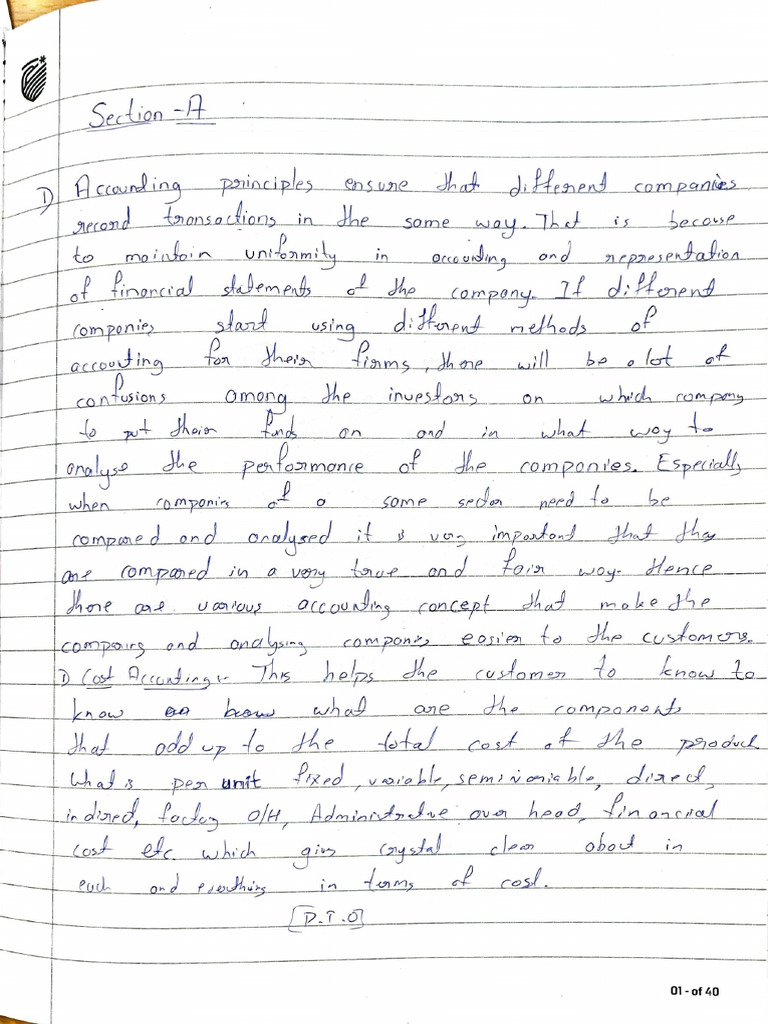 Section - A
1) Accounting principles ensure that different companies
record transactions in the same way. That is because
to maintain uniformity in accounting and representation
of financial statements of the company. If different
companies start using different methods of
accounting for their firms, there will be a lot of
confusions among the investors on which company
to put their funds on and in what way to
analyse the performance of the companies. Especially
when companies of a same sector need to be
compared and analysed it is very important that they
are compared in a very true and fair way. Hence
there are various accounting concept that make the
comparing and analysing companies easier to the customers.
1) Cost Accounting:- This helps the customer to know to
know what are the components
that add up to the total cost of the product
What is per unit fixed, variable, semivariable, direct,
indirect, factory O/H, Administrative over head, financial
cost etc. which gives crystal clear about in
each and everything in terms of cost.
[P.T.O]
01 - of 40